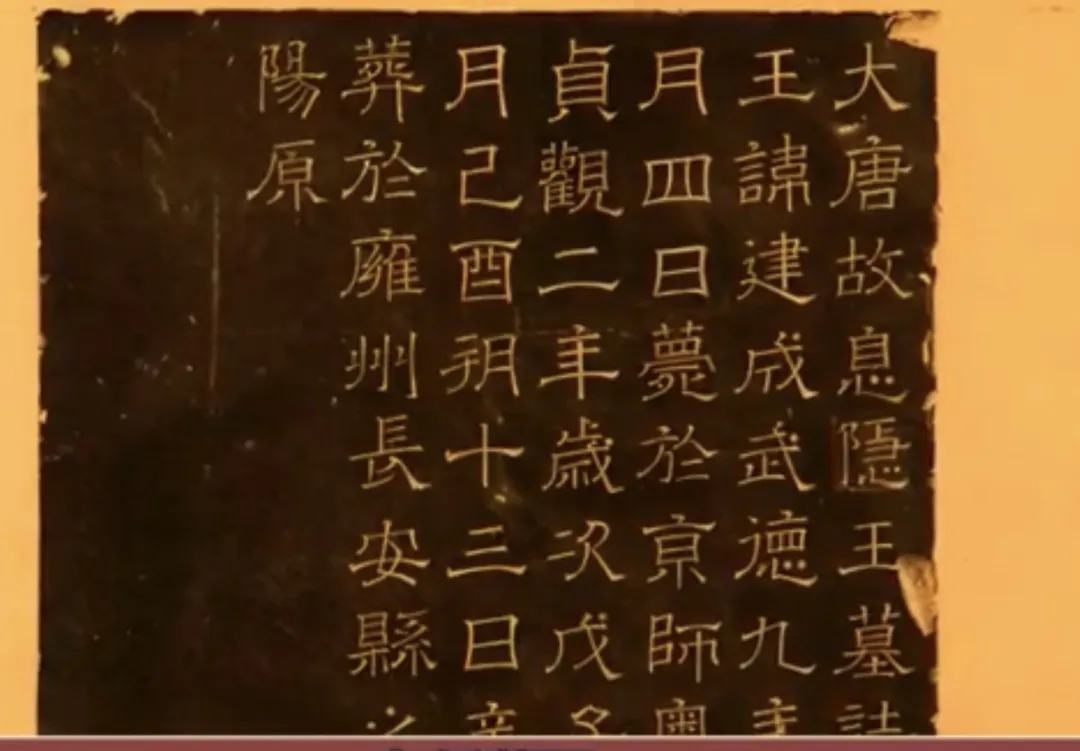 大唐故息隱王墓誌
王諱建成武德九年
月四日薨於京師粵
貞觀二年歲次戊子
月己酉朔十三日辛
葬於雍州長安縣之
陽原